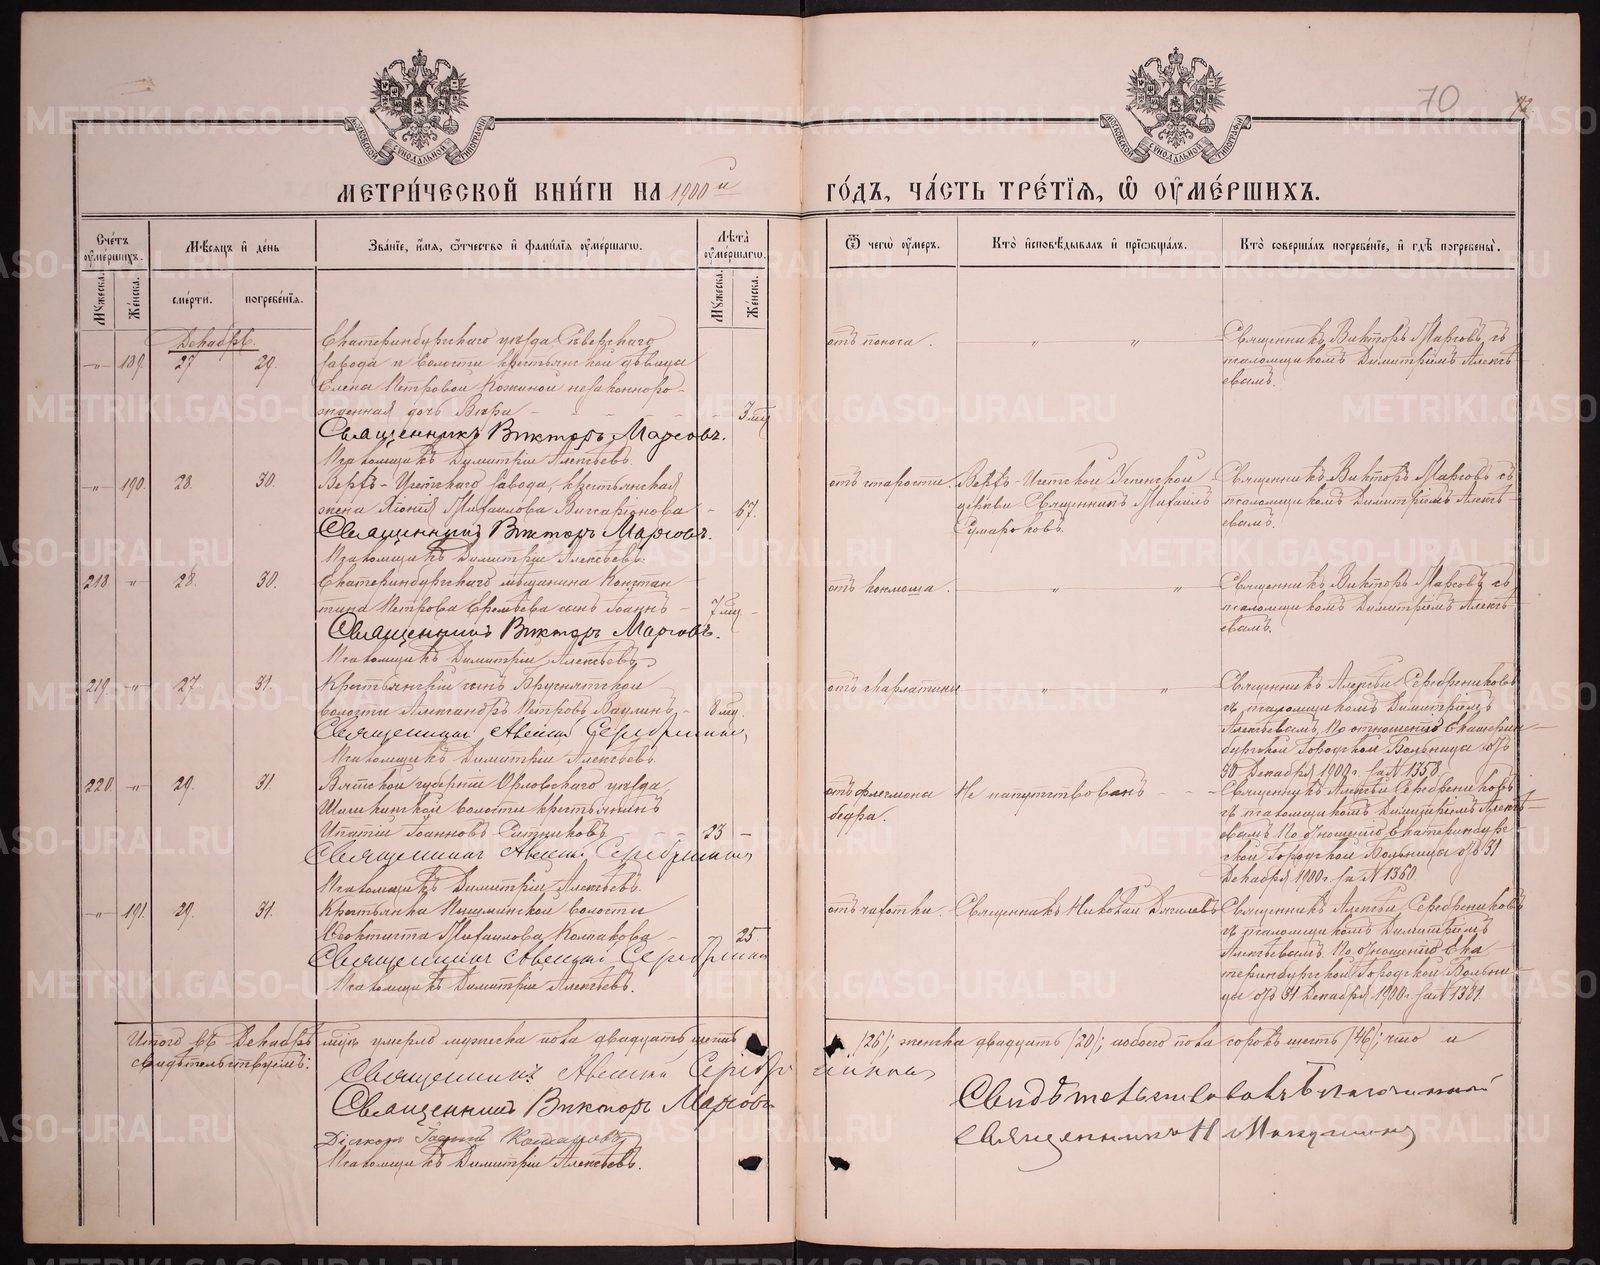 70
МЕТРИ́ЧЕСКОЙ КНИ́ГИ НА 1900 й
ГО́ДЪ, ЧА́СТЬ ТРЕ́ТІѦ, Ѡ ОУМЕ́РШИХЪ.
Сче́тъ оумершихъ.
Мѣсѧцъ и де́нь
Зва́нїе, и́мѧ, о́тчество и фами́лїѧ оуме́ршагѡ.
Лѣта̀ оуме́ршагѡ.
Ѿ чегѡ̀ оу́меръ.
Кто̀ и́сповѣдывалъ и прїѡбща́лъ.
Кто̀ соверша́лъ погребе́нїе, и гдѣ̀ погребены̀.
Мꙋжеска. Же́нска. сме́рти. погребе́нїѧ. Мꙋжеска. Же́нска.
Декабрь.
-„- 189. 27 29.
Екатеринбургскаго уѣзда Сѣверскаго
завода и волости крестьянской дѣвицы
Елены Петровой Кожиной незаконноро-
жденная дочь Вѣра - 3 мц
Священникъ Викторъ Марсовъ.
Псаломщикъ Димитрій Алексѣевъ.
отъ поноса. „ „
Священникъ Викторъ Марсовъ съ
псаломщикомъ Димитріемъ Алексѣ-
евымъ.
-„- 190. 28. 30.
Верхъ-Исетскаго завода, крестьянская
жена Хіонія Михаилова Виссаріонова - 67.
Священникъ Викторъ Марсовъ.
Псаломщикъ Димитрій Алексѣевъ.
отъ старости.
Верхъ-Исетской Успенской
церкви Священникъ Михаилъ
Сумароковъ.
Священникъ Викторъ Марсовъ съ
псаломщикомъ Димитріемъ Алексѣ-
евымъ.
218 -„- 28. 30.
Екатеринбургскаго мѣщанина Констан-
тина Петрова Еремѣева сынъ Іоаннъ - 7 мц -
Священникъ Викторъ Марсовъ.
Псаломщикъ Димитрій Алексѣевъ.
отъ кокюша. „ „
Священникъ Викторъ Марсовъ съ
псаломщикомъ Димитріемъ Алексѣ-
евымъ.
219. -„- 27 31.
Крестьянскій сынъ
волости Александръ Петровъ Ваулинъ - 8 мц.
Священникъ Алексій Серебренниковъ
Псаломщикъ Димитрій Алексѣевъ.
отъ скарлатины „ „
Священникъ Алексѣй Серебренниковъ
съ псаломщикомъ Димитріемъ
Алексѣевымъ. По отношенію Екатерин-
бургской Городской Больницы отъ
30 Декабря 1900 г. за № 1358
220. -„- 29. 31.
Вятской губерніи Орловскаго уѣзда,
волости крестьянинъ
Ипатій Іоанновъ Ситниковъ - 23 -
Священникъ Алексій Серебренниковъ
Псаломщикъ Димитрій Алексѣевъ.
отъ флегмоны
бедра.
Не напутствованъ - -
Священникъ Алексѣй Серебренниковъ
съ псаломщикомъ Димитріемъ Алексѣ-
евымъ. По отношенію Екатеринбург-
ской Городской Больницы отъ 31
Декабря 1900 г. за № 1360
-„- 191. 29. 31.
Крестьянка Пышминской волости
Ѳеоктиста Михаилова Колмакова - 25.
Священникъ Алексій Серебренниковъ
Псаломщикъ Димитрій Алексѣевъ.
отъ чахотки.
Священникъ Николай
Священникъ Алексѣй Серебренниковъ
съ псаломщикомъ Димитріемъ
Алексѣевымъ. По отношенію Ека-
теринбургской Городской Больни-
цы отъ 31 Декабря 1900 г. за № 1381
Итого въ Декабрѣ мцѣ умерло мужеска пола двадцать шесть /26/; женска двадцать /20/; обоего пола сорокъ шесть /46/; что и
свидѣтельствуемъ:
Священникъ Алексій Серебренниковъ
Священникъ Викторъ Марсовъ
Діаконъ
Псаломщикъ Димитрій Алексѣевъ.
Свидѣтельствовалъ Благочинный
священникъ Н
METRIKI.GASO-URAL.RU